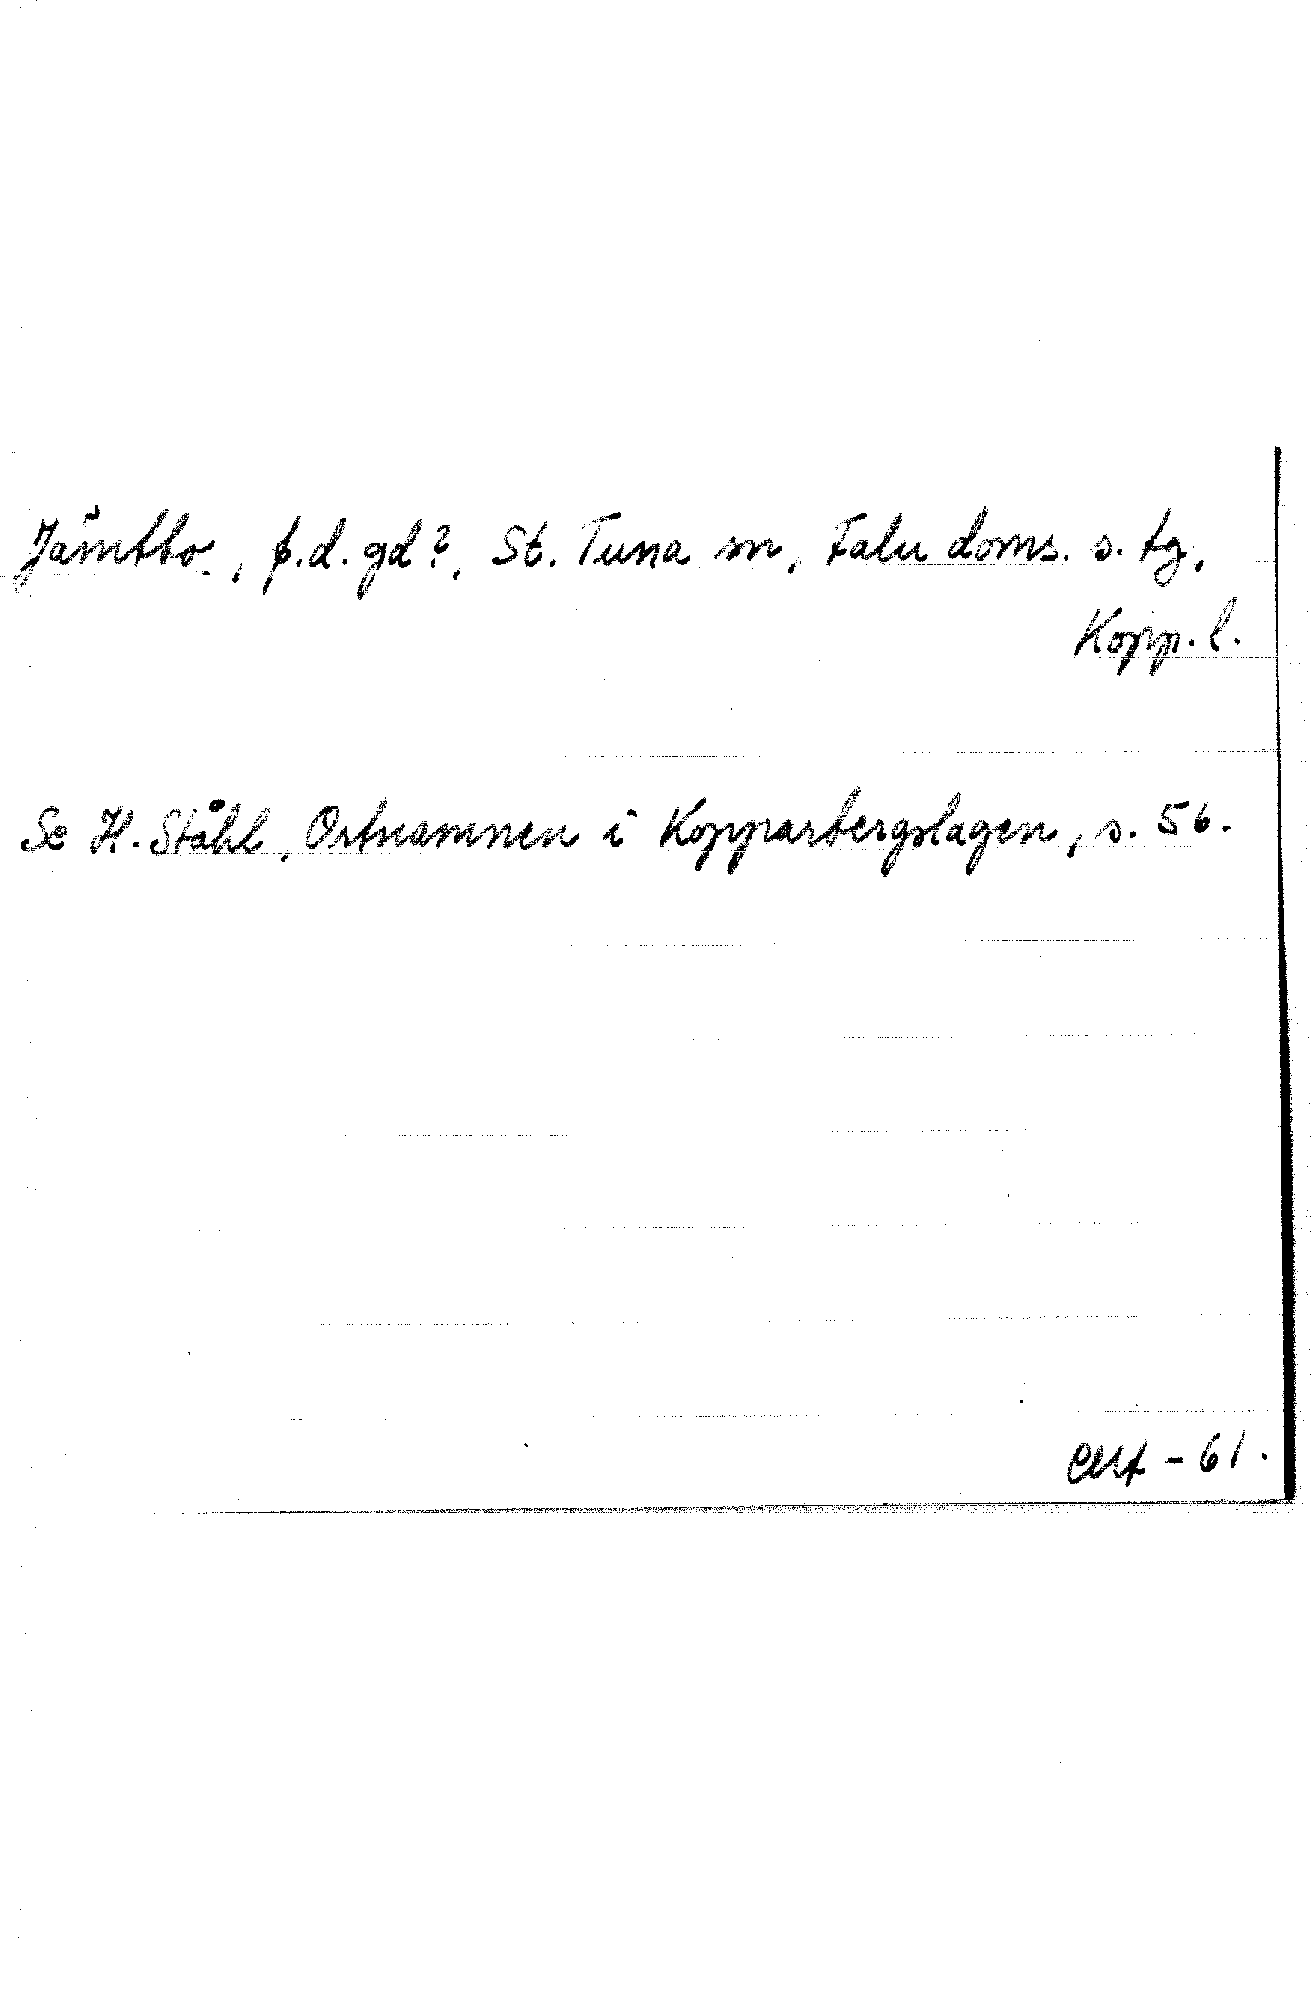 Jämtbo, f.d. gd?, St. Tuna sn, Falu doms. s. tg,
Kopp. l.
Se H. Ståhl, Ortnamnen i Kopparbergslagen, s. 56.
-61.